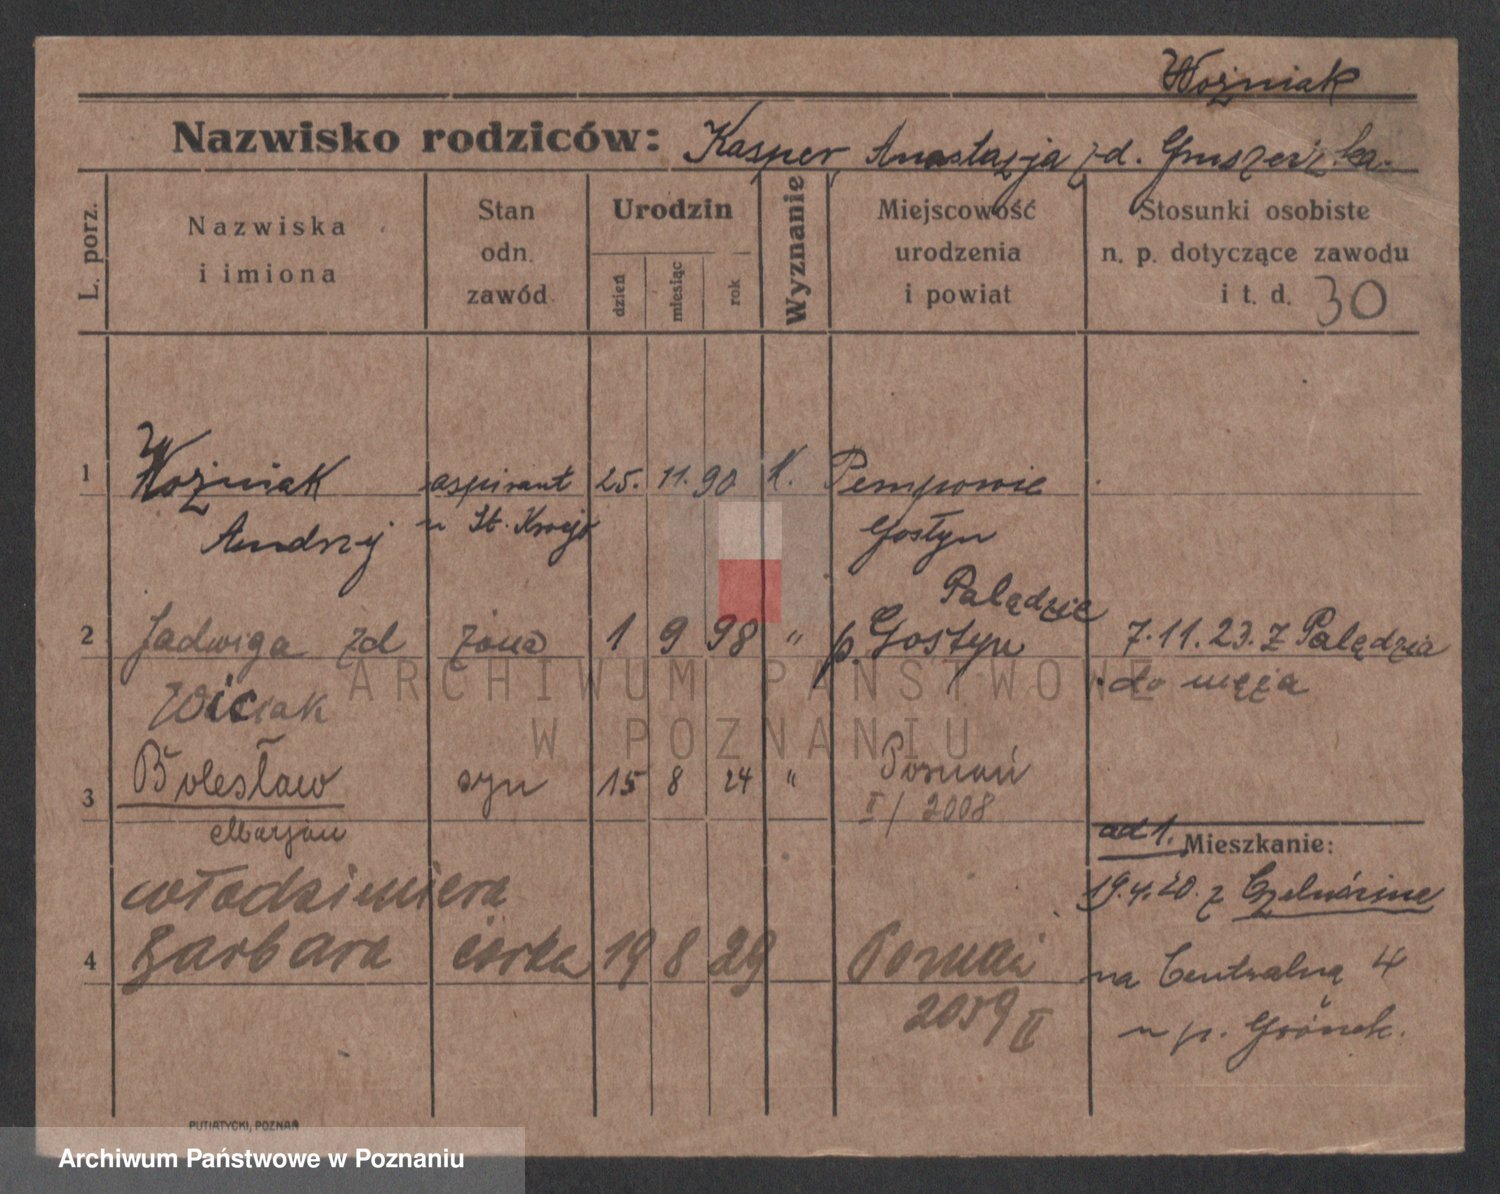 Woźniak
Nazwisko rodziców: Kasper, Anastazja zd.
L. porz.
Nazwiska
i imiona
Stan
odn.
zawód
Urodzin
dzień
miesiąc
rok
Wyznanie
Miejscowość
urodzenia
i powiat
Stosunki osobiste
n. p. dotyczące zawodu
i t. d. 30
1 Woźniak aspirant 25. 11. 90 K. Pempowie
Andrzej Gostyn
Palędzie
2 Jadwiga zd żona 1 9 98 " p. Gostyn 7.11.23. z Palędzia
Wiciak do męża
3 Bolesław syn 15 8 24 " Poznań
Marjan II/2008
ad 1. Mieszkanie:
Włodzimiera 19.4.20. z
4 Barbara córka 19 8 29 Poznań
na Centralną 4
2059 II
u p. Grönek.
PUTIATYCKI, POZNAŃ
ARCHIWUM PAŃSTWOWE
W POZNANIU
Archiwum Państwowe w Poznaniu